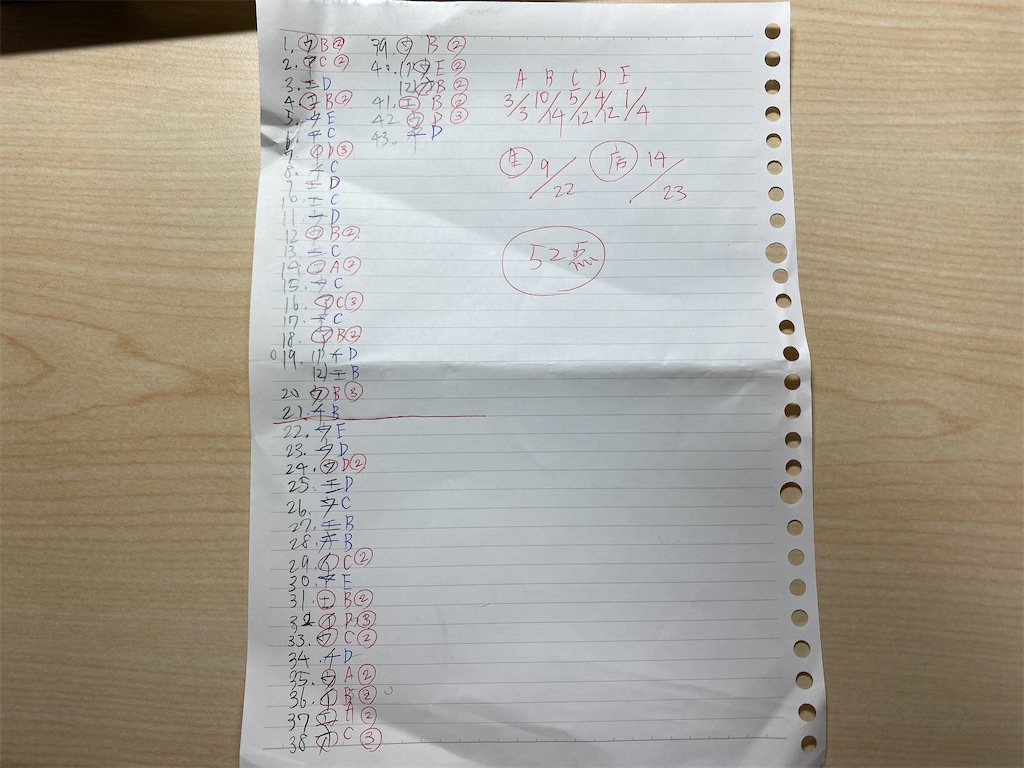 1. ウ B ②
2. ア C ②
3. エ D
4. エ B ②
5. ウ E
6. イ C
7. イ D ③
8. イ C
9. エ D
10. エ C
11. ア D
12. ウ B ②
13. エ C
14. ア A ②
15. ウ C
16. ア C ③
17. エ C
18. ア B ②
19. (1) イ D
(2) エ B
20 ウ B ③
21. イ B
22. ウ E
23. ウ D
24. ウ D ②
25. エ D
26. ウ C
27. エ B
28. ア B
29. イ C ②
30. ア E
31. エ B ②
32 イ D ③
33. ウ C ②
34. イ D
35. ウ A ②
36. イ B ②
37 エ A ②
38 ア C ③
39. ウ B ②
40. (1) ウ E ②
(2) ア B ②
41. エ B ②
42 ウ D ③
43. イ D
A B C D E
3/3 10/14 5/12 4/12 1/4
生 9/22 店 14/23
52点